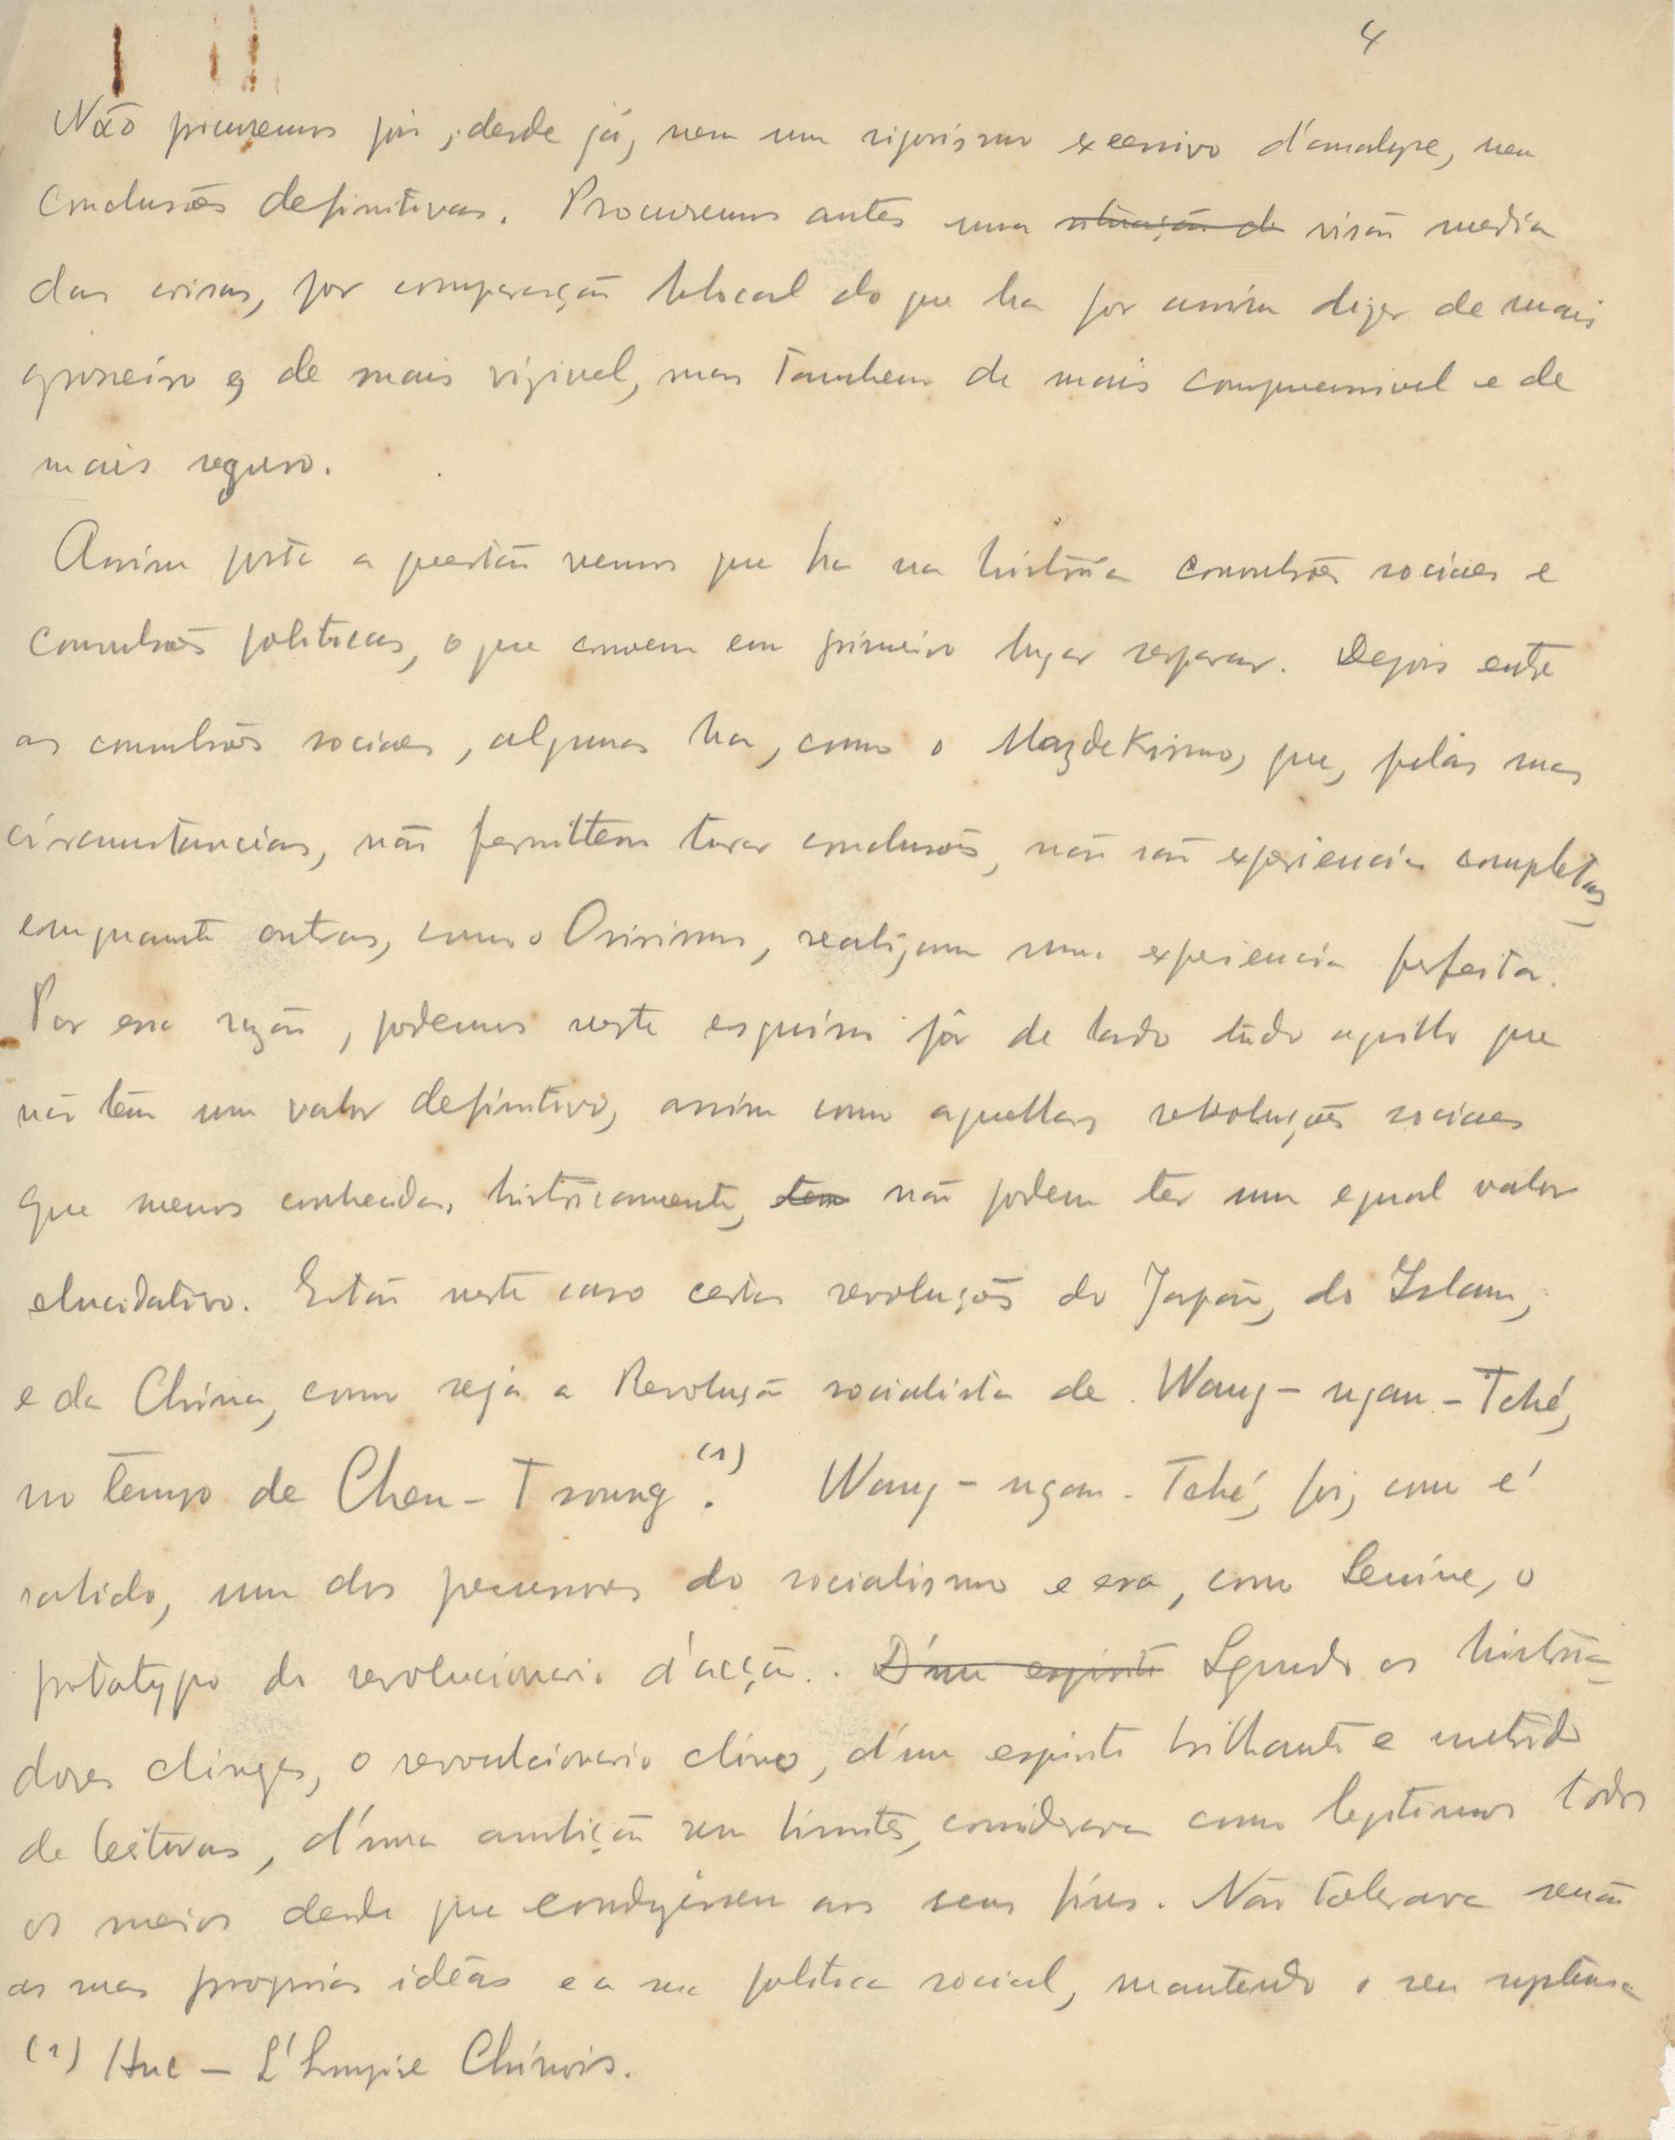 4
Não procuremos pois, desde já, nem um rigorismo excessivo d'analyse, nem
conclusões definitivas. Procuremos antes uma situação de visão media
das coisas, por comparação blocal do que ha por assim dizer de mais
grosseiro e de mais vizivel, mas tambem de mais comprensivel e de
mais seguro.
Assim posta a questão vemos que ha na história convulsões sociaes e
convulsões politicas, o que convem em primeiro lugar separar. Depois entre
as convulsões sociaes, algumas ha, como o Mazdekismo, que, pelas suas
circumstancias, não permittem tirar conclusões, não são experiencias completas,
emquanto outras, como o Osirismo, realizam uma experiencia perfeita.
Por essa razão, podemos neste esquisso pôr de lado tudo aquillo que
não tem um valor definitivo, assim como aquellas revoluções sociaes
que menos conhecidas, históricamente, tem não podem ter um egual valor
elucidativo. Estão neste caso certas revoluções do Japão, do Islam,
e da China, como seja a Revolução socialista de Wang-ngan-Tché,
no tempo de Chen-Tsoung (1). Wang-ngan-Tché, foi, como é
sabido, um dos precursores do socialismo e era, como Lenine, o
prototypo do revolucionario d'acção. D'um espirito Segundo os historia-
dores chinezes, o revoulcionario chino, d'um espirito brilhante e nutrido
de leituras, d'uma ambição sem limites, considerava como legitimos todos
os meios desde que conduzissem aos seus fins. Não tolerava senão
as suas proprias idéas e a sua politica social, mantendo o seu systema
(1) Huc – L'Empire Chinois.